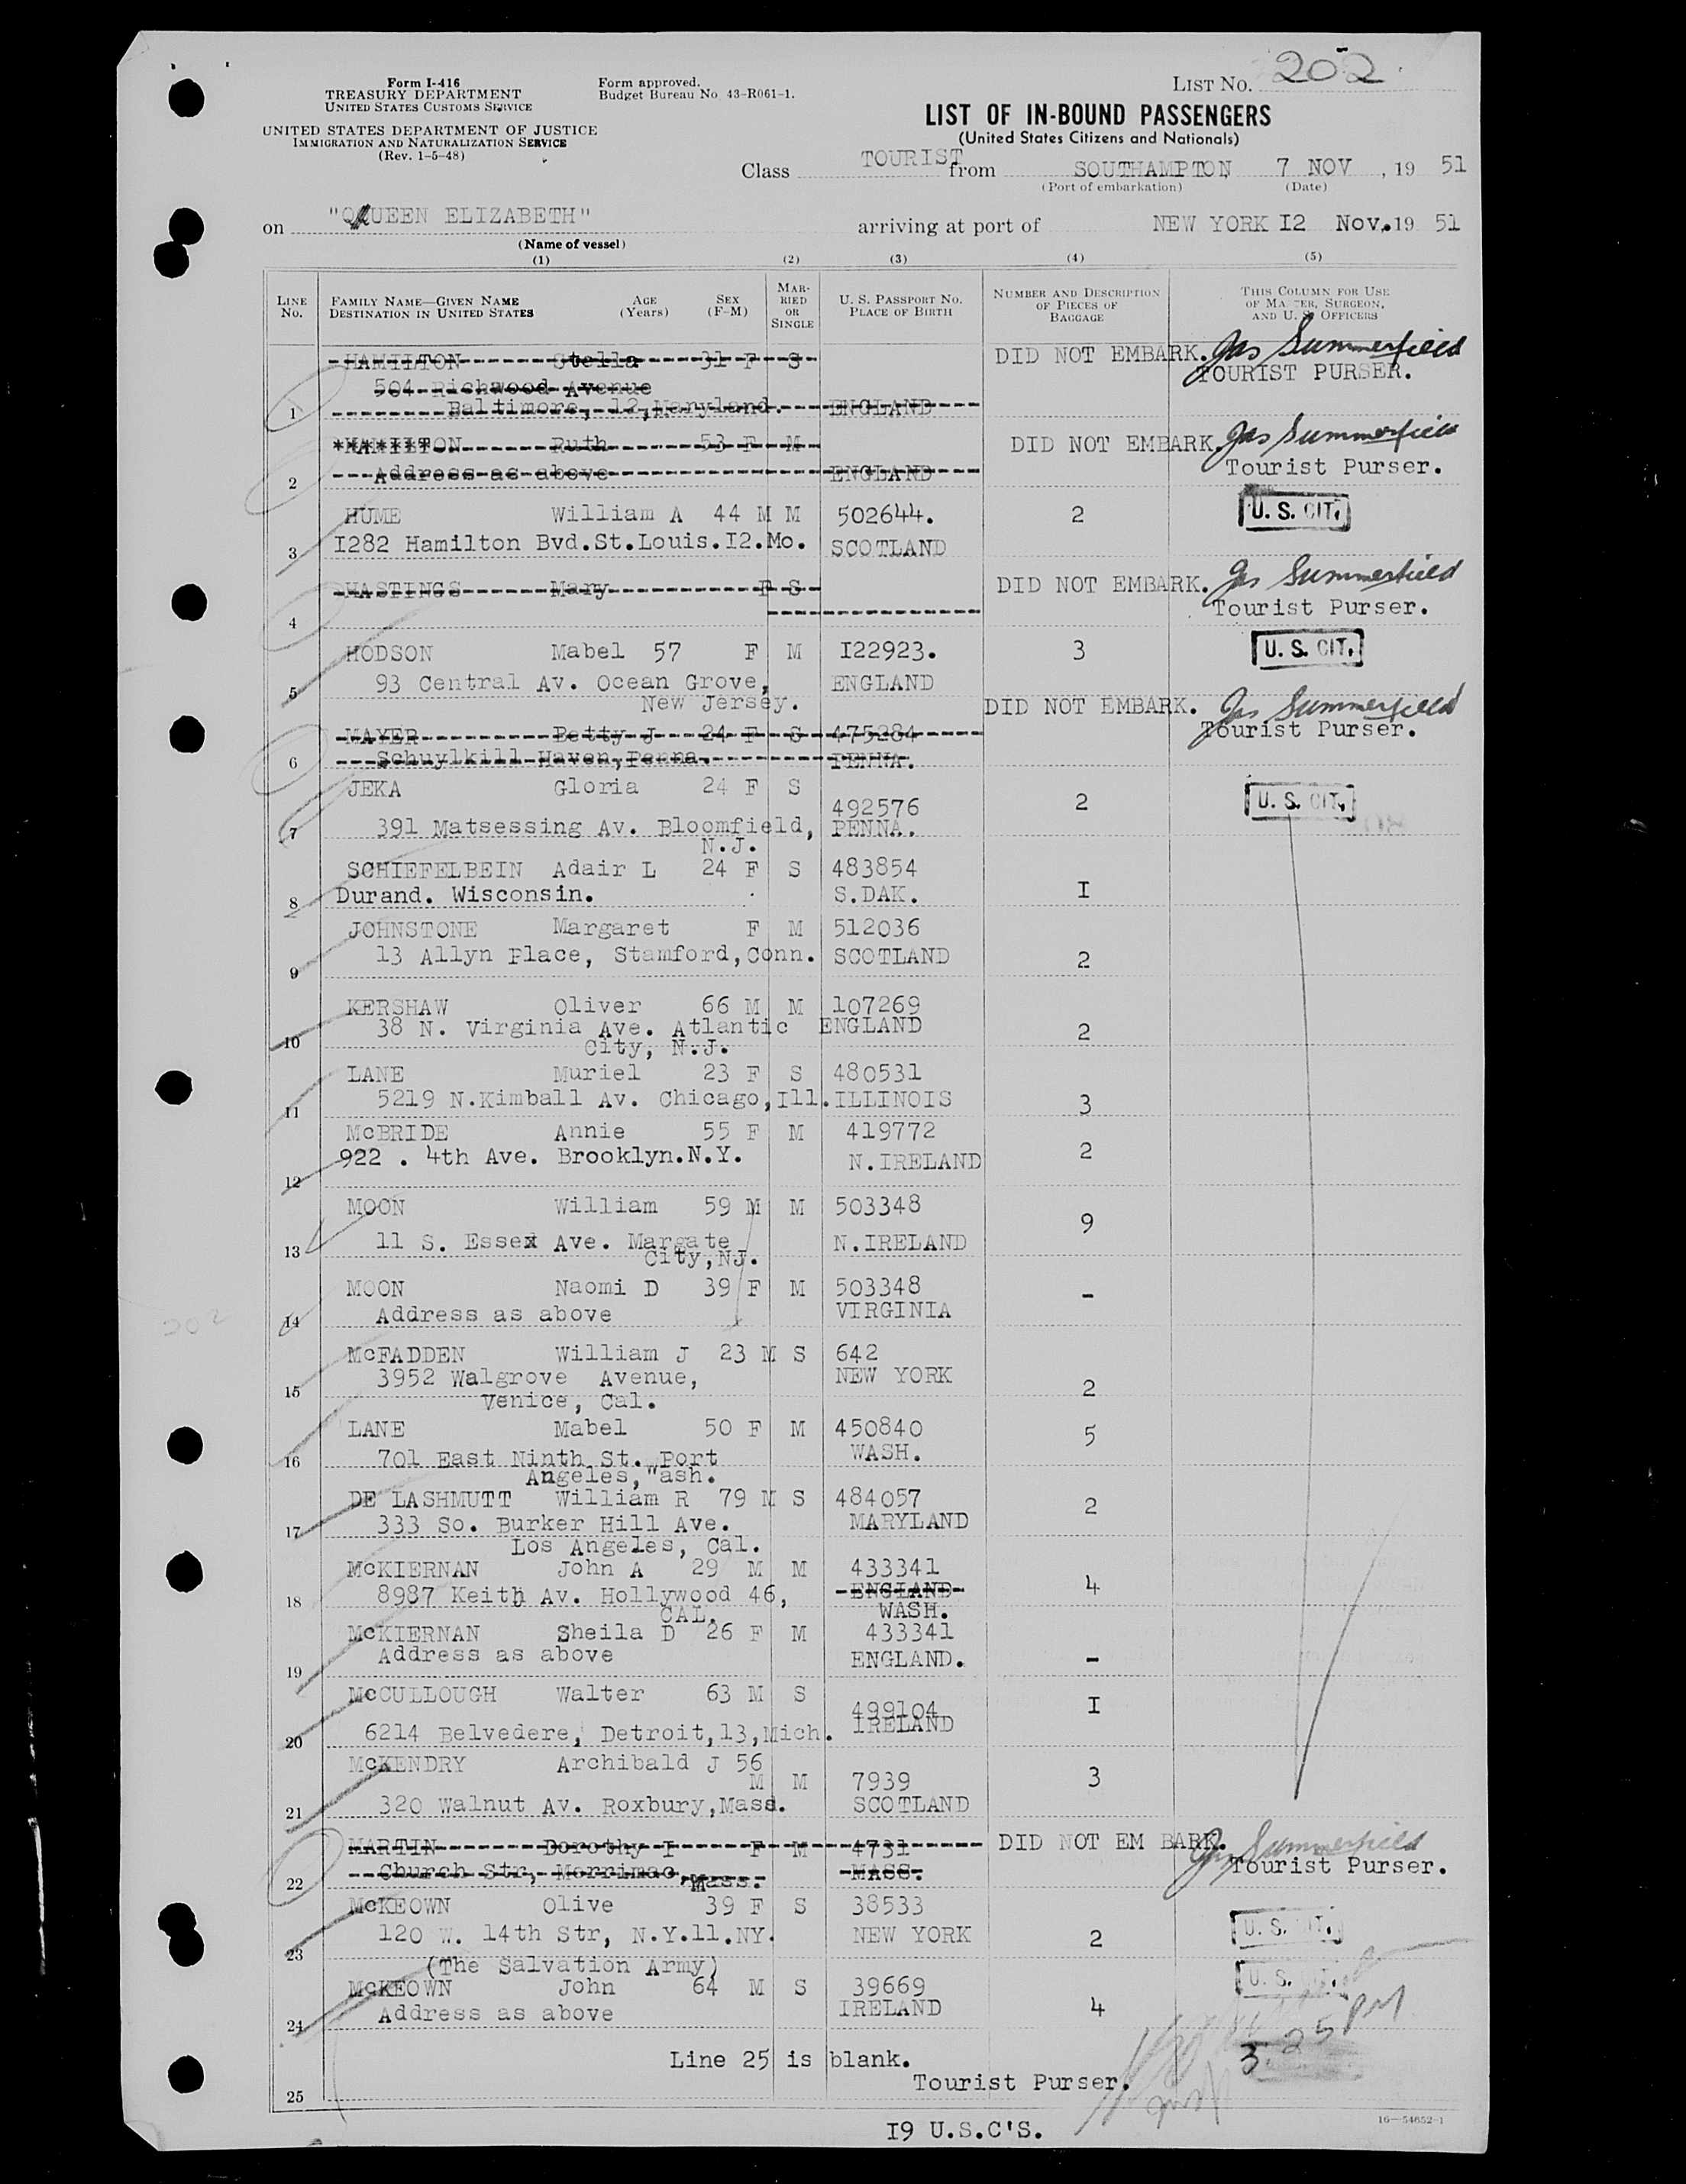 Form I-416
TREASURY DEPARTMENT
UNITED STATES CUSTOMS SERVICE
UNITED STATES DEPARTMENT OF JUSTICE
IMMIGRATION AND NATURALIZATION SERVICE
(Rev. 1-5-48)
Form approved.
Budget Bureau No 43-R061-1.
LIST No. 202
LIST OF IN-BOUND PASSENGERS
(United States Citizens and Nationals)
Class TOURIST from SOUTHAMPTON, 7 NOV, 19 51
(Port of embarkation) (Date)
on "QUEEN ELIZABETH" arriving at port of NEW YORK I2 Nov. 19 51
(Name of vessel)
(1) (2) (3) (4) (5)
LINE No. FAMILY NAME—GIVEN NAME DESTINATION IN UNITED STATES AGE (Years) SEX (F-M) MARRIED OR SINGLE U. S. PASSPORT No. PLACE OF BIRTH NUMBER AND DESCRIPTION OF PIECES OF BAGGAGE THIS COLUMN FOR USE OF MASTER, SURGEON, AND U. S. OFFICERS
HAMILTON Stella 31 F S DID NOT EMBARK. Jas Summerfield
504 Richwood Avenue TOURIST PURSER.
1 Baltimore, 12, Maryland. ENGLAND
HAMILTON Ruth 53 F M DID NOT EMBARK. Jas Summerfield
2 Address as above ENGLAND Tourist Purser.
HUME William A 44 M M 502644. 2 U. S. CIT.
3 I282 Hamilton Bvd.St.Louis.I2.Mo. SCOTLAND
HASTINGS Mary F S DID NOT EMBARK. Jas Summerfield
4 Tourist Purser.
HODSON Mabel 57 F M I22923. 3 U. S. CIT.
5 93 Central Av. Ocean Grove, ENGLAND
New Jersey.
DID NOT EMBARK. Jas Summerfield
MAYER Betty J 24 F S 475284 Tourist Purser.
6 Schuylkill Haven, Penna. PENNA.
JEKA Gloria 24 F S 492576 2 U. S. CIT.
7 391 Matsessing Av. Bloomfield, PENNA.
N.J.
SCHIEFELBEIN Adair L 24 F S 483854
8 Durand. Wisconsin. S.DAK. I
JOHNSTONE Margaret F M 512036
9 13 Allyn Place, Stamford, Conn. SCOTLAND 2
KERSHAW Oliver 66 M M 107269
10 38 N. Virginia Ave. Atlantic ENGLAND 2
City, N.J.
LANE Muriel 23 F S 480531
11 5219 N.Kimball Av. Chicago, Ill. ILLINOIS 3
McBRIDE Annie 55 F M 419772
12 922 . 4th Ave. Brooklyn.N.Y. N.IRELAND 2
MOON William 59 M M 503348 9
13 11 S. Essex Ave. Margate N.IRELAND
City,NJ.
MOON Naomi D 39 F M 503348 -
14 Address as above VIRGINIA
McFADDEN William J 23 M S 642
3952 Walgrove Avenue, NEW YORK
15 Venice, Cal. 2
LANE Mabel 50 F M 450840 5
16 701 East Ninth St. Port WASH.
Angeles,"ash.
DE LASHMUTT William R 79 M S 484057 2
17 333 So. Burker Hill Ave. MARYLAND
Los Angeles, Cal.
McKIERNAN John A 29 M M 433341 4
18 8987 Keith Av. Hollywood 46, ENGLAND
CAL. WASH.
McKIERNAN Sheila D 26 F M 433341
19 Address as above ENGLAND. -
McCULLOUGH Walter 63 M S 499104 I
20 6214 Belvedere, Detroit,13,Mich. IRELAND
McKENDRY Archibald J 56
M M 7939 3
21 320 Walnut Av. Roxbury,Mass. SCOTLAND
MARTIN Dorothy I F M 4731 DID NOT EM BARK. Jas Summerfield
22 Church Str, Merrimac, Mass. MASS. Tourist Purser.
McKEOWN Olive 39 F S 38533 U. S. CIT.
23 120 W. 14th Str, N.Y.11.NY. NEW YORK 2
(The Salvation Army)
McKEOWN John 64 M S 39669 U. S.
24 Address as above IRELAND 4
3.25 PM
Line 25 is blank.
25 Tourist Purser.
I9 U.S.C'S.
16—54652-1
202